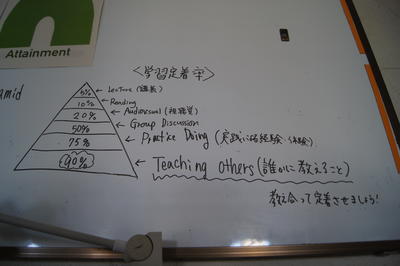 Attainment
<学習定着率>
amid
5% ← Lecture (講義)
10% ← Reading
20% ← Audiovisual (視聴覚)
50% ← Group Discussion
75% ← Practice Doing (実践による経験・体験)
90% ← Teaching Others (誰かに教えること)
教え合って定着させましょう!